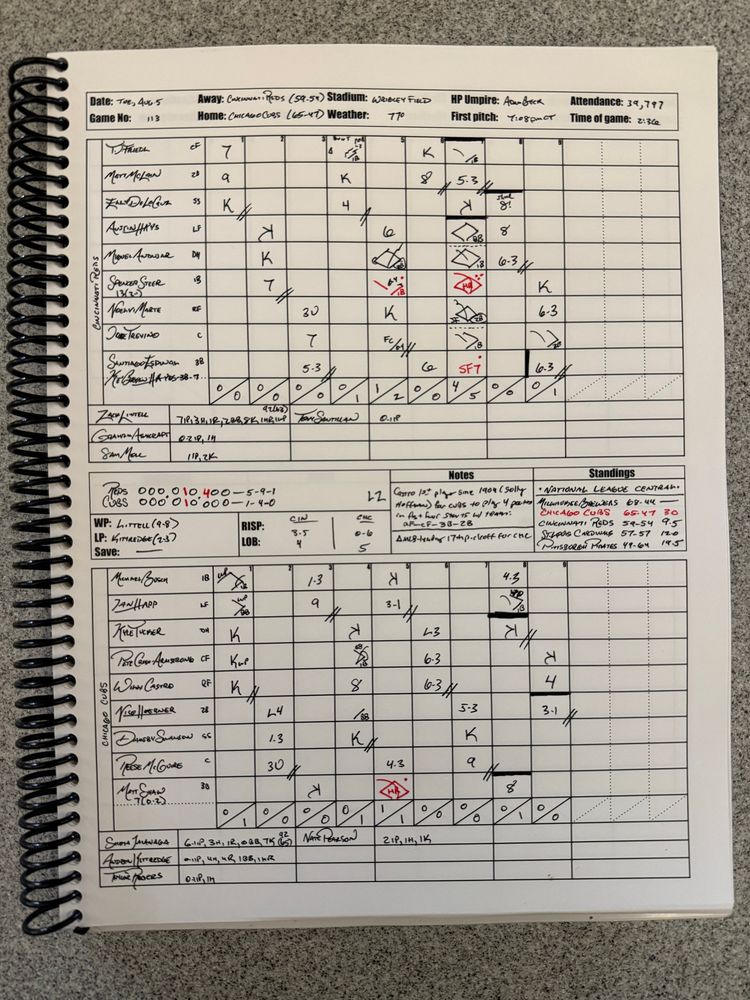 Date: TUE, AUG 5 Away: CINCINNATI REDS (59-54) Stadium: WRIGLEY FIELD HP Umpire: ADAM BECK Attendance: 39,797
Game No: 113 Home: CHICAGO CUBS (65-47) Weather: 77° First pitch: 7:08PM CT Time of game: 2:36
1 2 3 4 5 6 7 8 9
CINCINNATI REDS
TJ FRIEDL CF 7 K 1B
MATT MCLAIN 2B 9 K 8 5-3
ELLY DE LA CRUZ SS K 4 K 8!
AUSTIN HAYS LF K 6 8
MIGUEL ANDUJAR DH K 1B 6-3
SPENCER STEER 1B 7 1B HR K
13(2-)
NOELVI MARTE RF 30 K 2B 6-3
JOSE TREVINO C 7 FC/6-4 1B
SANTIAGO ESPINAL 3B 5-3 6 SF7 6-3
KE'BRYAN HAYES-3B-7
0/0 0/0 0/0 0/1 1/2 0/0 4/5 0/0 0/1
ZACK LITTELL 7IP, 3H, 1R, 2BB, 8K, 1HR, 1WP TONY SANTILLAN 0.1IP
GRAHAM ASHCRAFT 0.2IP, 1H
SAM MOLL 1IP, 2K
REDS 000 010 400 — 5-9-1
CUBS 000 010 000 — 1-4-0
L2
WP: LITTELL (9-8)
LP: KITTREDGE (2-3)
Save: —
CIN CHC
RISP: 3-5 0-6
LOB: 4 5
Notes
CASTRO 1ST player since 1904 (Solly
Hoffman) for CUBS to play 4 positions
in first four starts w/ team:
RF-CF-3B-2B
MLB-leading 17th pickoff for CHC
Standings
• NATIONAL LEAGUE CENTRAL •
MILWAUKEE BREWERS 68-44 —
CHICAGO CUBS 65-47 3.0
CINCINNATI REDS 59-54 9.5
ST LOUIS CARDINALS 57-57 12.0
PITTSBURGH PIRATES 49-64 19.5
1 2 3 4 5 6 7 8 9
CHICAGO CUBS
MICHAEL BUSCH 1B 1-3 K 4-3
IAN HAPP LF WP BB 9 3-1 1B
KYLE TUCKER DH K K L3 K
PETE CROW-ARMSTRONG CF KWP 1B 6-3 K
WILLI CASTRO RF K 8 6-3 4
NICO HOERNER 2B L4 BB 5-3 3-1
DANSBY SWANSON SS 1-3 K K
REESE MCGUIRE C 30 4-3 9
MATT SHAW 3B K HR 8
7(0-2)
0/1 0/0 0/0 0/1 1/1 0/0 0/0 0/1 0/0
SHOTA IMANAGA 6.1IP, 3H, 1R, 0BB, 7K NATE PEARSON 2IP, 1H, 1K
ANDREW KITTREDGE 0.1IP, 4H, 4R, 1BB, 1HR
TAYLOR ROGERS 0.1IP, 1H